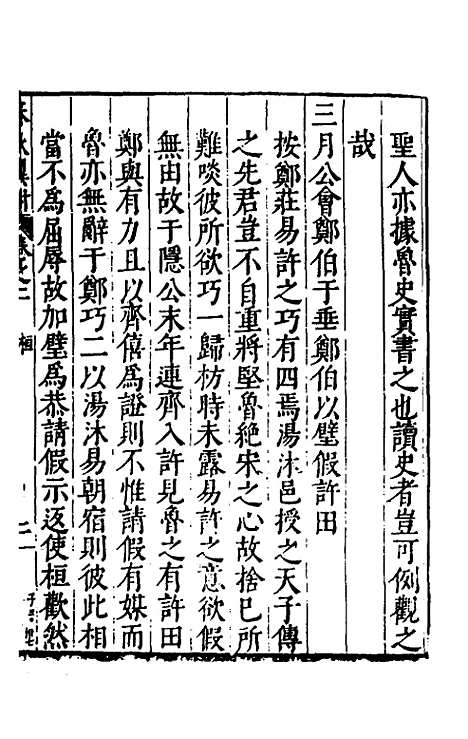 聖人亦據魯史實書之也讀史者豈可例觀之
哉
三月公會鄭伯于垂鄭伯以璧假許田
按鄭莊易許之巧有四焉湯沐邑授之天子傳
之先君豈不自重將堅魯絕宋之心故捨己所
難啖彼所欲巧一歸枋時未露易許之意欲假
無由故于隱公末年連齊入許見魯之有許田
鄭與有力且以齊僖爲證則不惟請假有媒而
魯亦無辭于鄭巧二以湯沐易朝宿則彼此相
當不爲屈辱故加璧爲恭請假示返使桓歡然
卷之二 桓